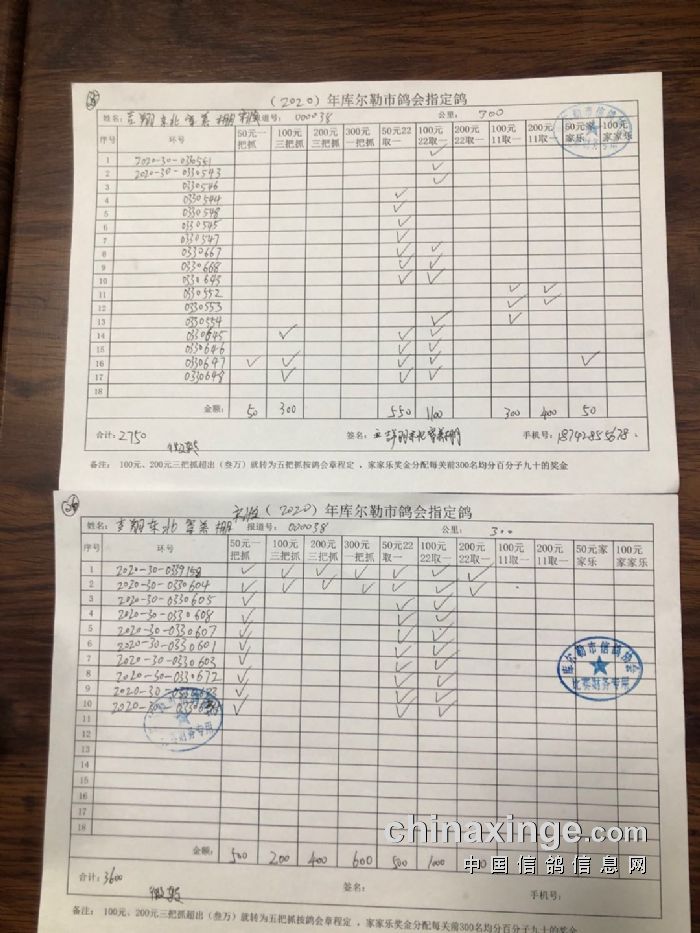 （2020）年库尔勒市鸽会指定鸽
姓名: 东北 棚 报道号: 000038 公里: 700
序号 环号 50元一把抓 100元三把抓 200元三把抓 300元一把抓 50元22取一 100元22取一 200元22取一 100元11取一 200元11取一 50元家家乐 100元家家乐
1 2020-30-0330561 ✓
2 2020-30-0330543 ✓
3 0330546
4 0330544 ✓
5 0330548 ✓
6 0330545 ✓
7 0330547 ✓
8 0330667 ✓ ✓
9 0330668 ✓ ✓
10 0330643 ✓ ✓
11 0330552 ✓ ✓
12 0330553 ✓ ✓
13 0330554 ✓ ✓
14 0330645 ✓ ✓ ✓
15 0330646 ✓ ✓
16 0330647 ✓ ✓ ✓ ✓ ✓
17 0330648 ✓ ✓ ✓
18
金额: 50 300 550 1100 300 400 50
合计: 2750 签名: 手机号: 18742855678
备注: 100元、200元三把抓超出（叁万）就转为五把抓按鸽会章程定，家家乐奖金分配每关前300名均分百分子九十的奖金
（2020）年库尔勒市鸽会指定鸽
姓名: 东北 棚 报道号: 000038 公里: 300
序号 环号 50元一把抓 100元三把抓 200元三把抓 300元一把抓 50元22取一 100元22取一 200元22取一 100元11取一 200元11取一 50元家家乐 100元家家乐
1 ✓ ✓ ✓ ✓ ✓ ✓ ✓
2 2020-30-0330604 ✓ ✓ ✓ ✓ ✓ ✓ ✓
3 2020-30-0330605 ✓ ✓ ✓
4 2020-30-0330608 ✓ ✓ ✓
5 2020-30-0330607 ✓ ✓ ✓
6 2020-30-0330601 ✓ ✓ ✓
7 2020-30-0330603 ✓ ✓ ✓
8 2020-30-0330672 ✓ ✓ ✓
9 ✓ ✓ ✓
10 ✓ ✓ ✓
11
12
13
14
15
16
17
18
金额: 500 200 400 600 500 1000
合计: 3600 签名: 手机号:
备注: 100元、200元三把抓超出（叁万）就转为五把抓按鸽会章程定，家家乐奖金分配每关前300名均分百分子九十的奖金
库尔勒市信鸽协会
chinaxinge.com
中国信鸽信息网